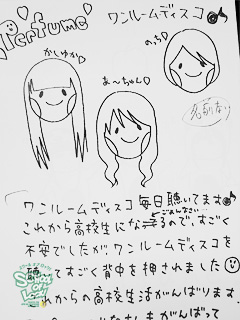 Perfume
ワンルームディスコ♪
のっち♡
かしゆか♡
あ〜ちゃん♡
名前なし
ワンルームディスコ毎日聴いてます♪
これから高校生になるので、すごく
ごめんなさい
不安でしたが、ワンルームディスコを
聴いてすごく背中を押されました☺
これからの高校生活がんばります。